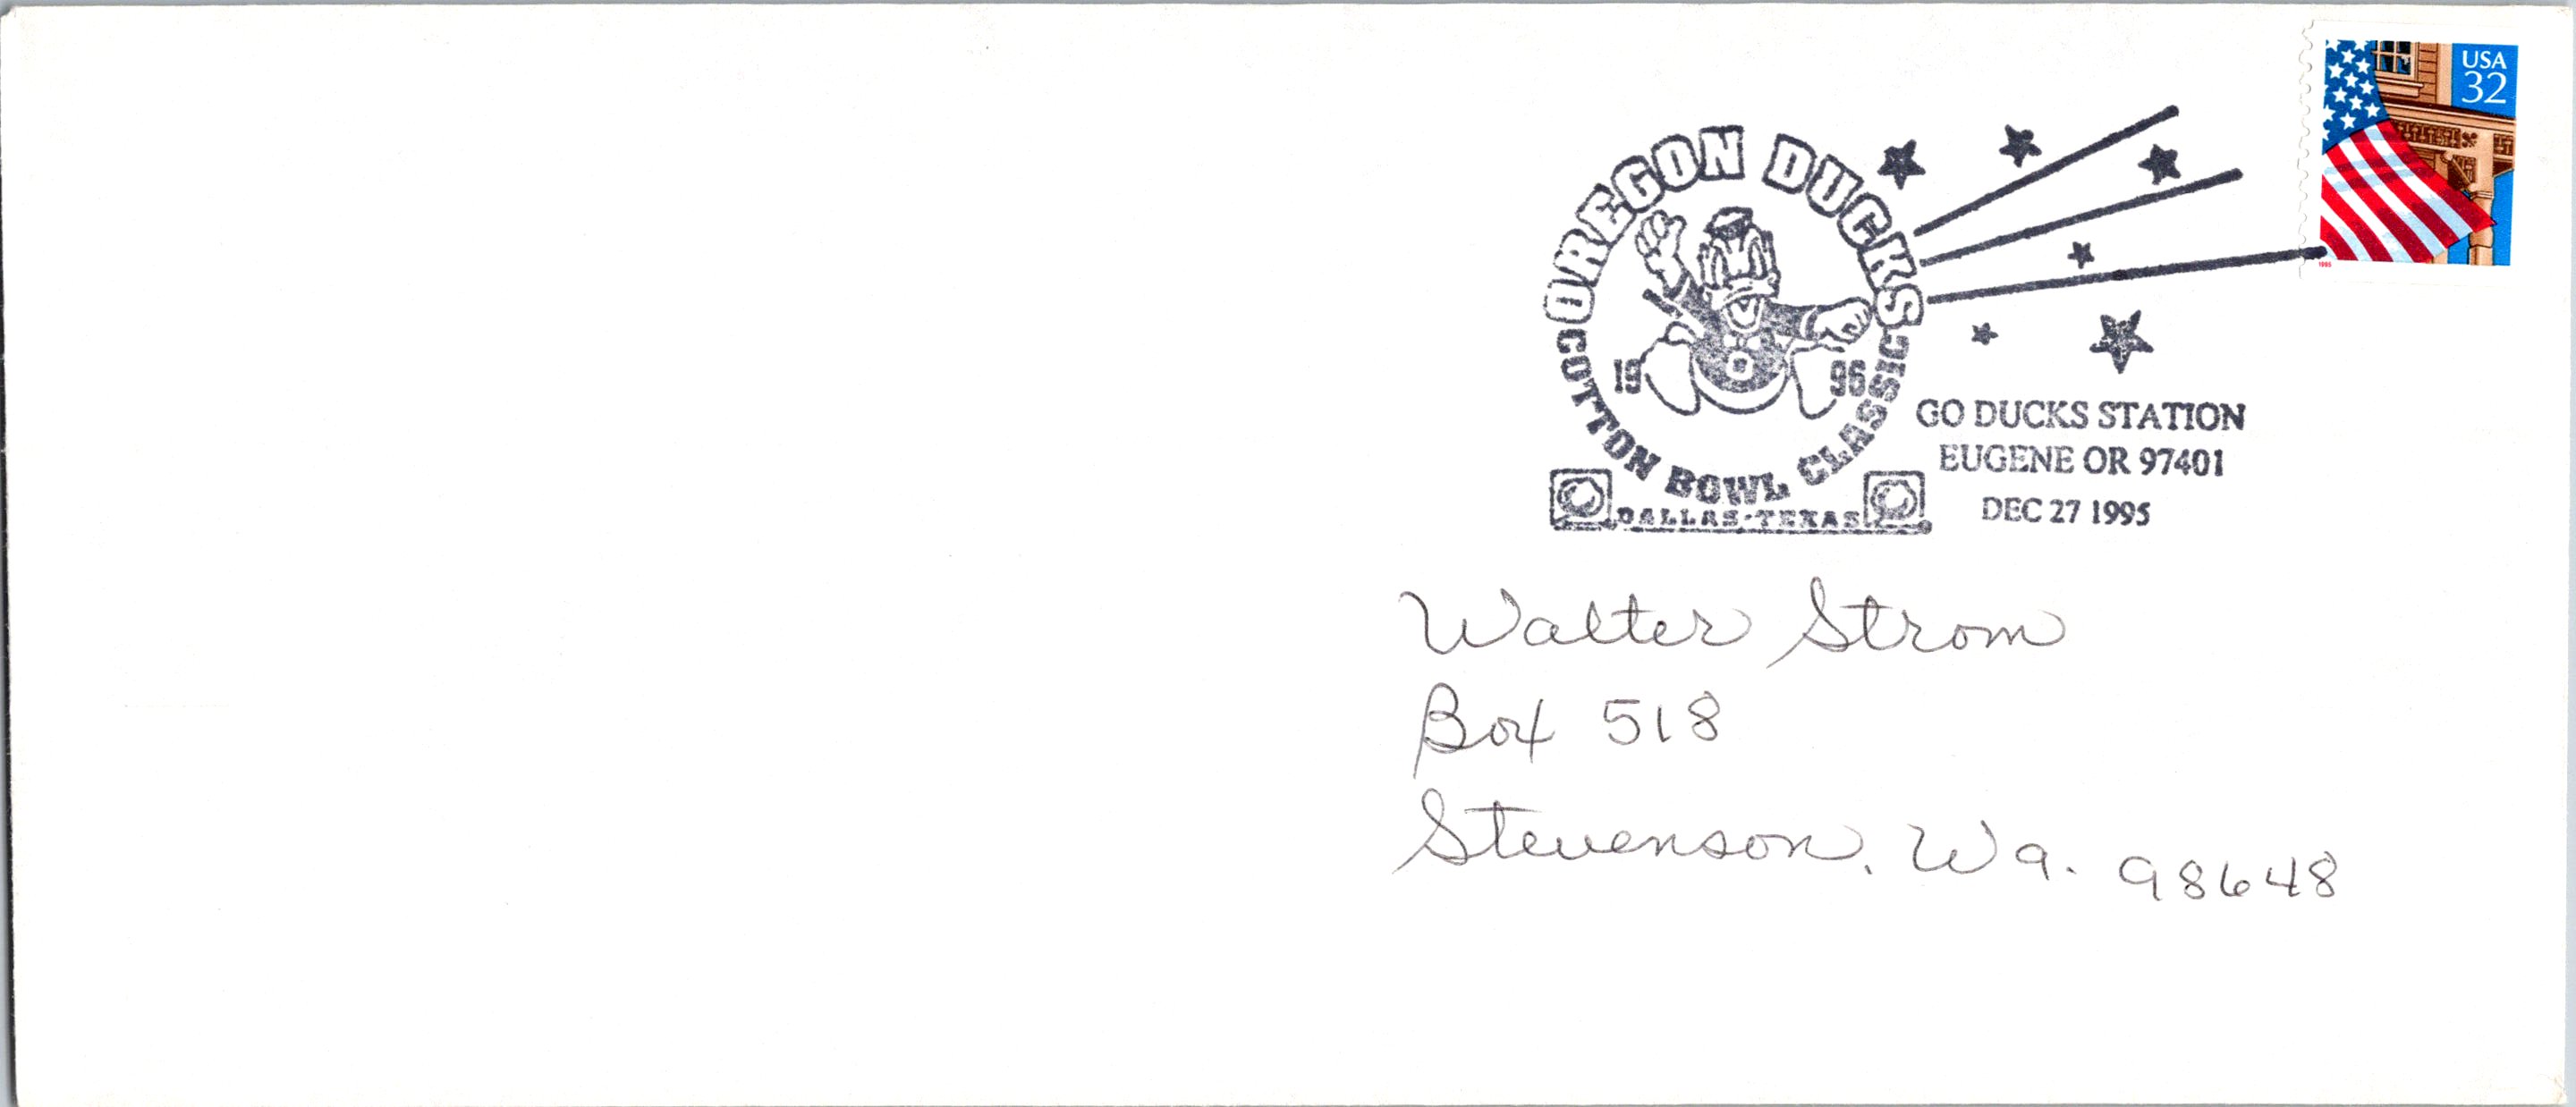 USA
32
OREGON DUCKS
19 96
O
COTTON BOWL CLASSIC
DALLAS-TEXAS
GO DUCKS STATION
EUGENE OR 97401
DEC 27 1995
1995
Walter Strom
Box 518
Stevenson, Wa. 98648